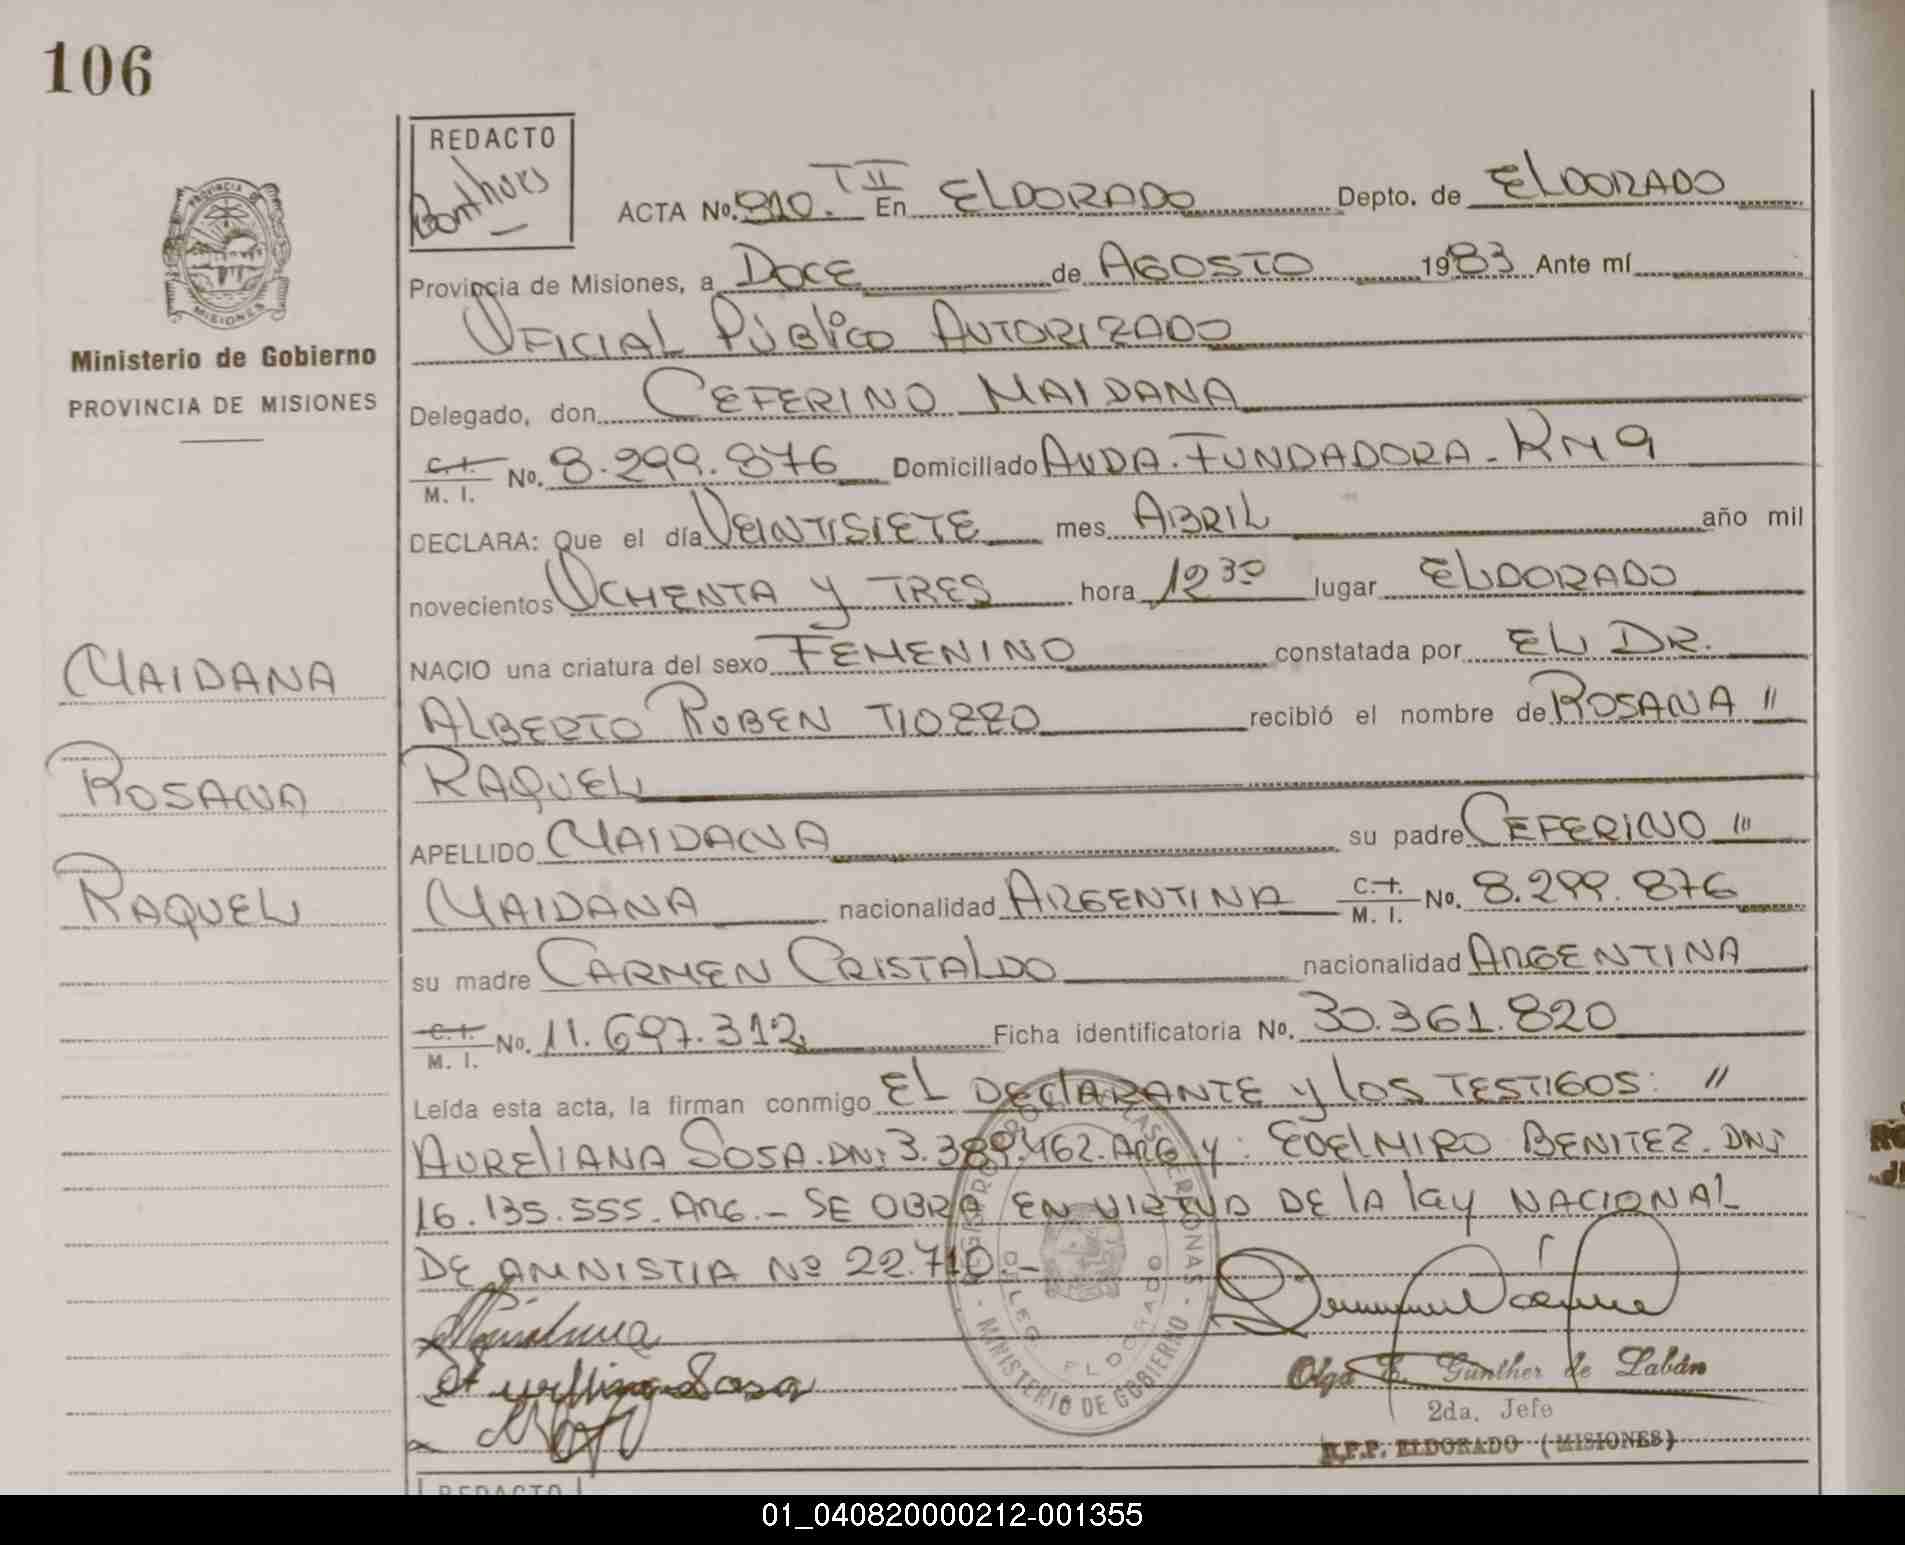 106
REDACTO
Bonthues
PROVINCIA DE
MISIONES
Ministerio de Gobierno
PROVINCIA DE MISIONES
MAIDANA
ROSANA
RAQUEL
ACTA No. 910. T II En ELDORADO Depto. de ELDORADO
Provincia de Misiones, a DOCE de AGOSTO 1983 Ante mí
OFICIAL PÚBLICO AUTORIZADO
Delegado, don CEFERINO MAIDANA
C. I. M. I. No. 8.299.876 Domiciliado AVDA. FUNDADORA - KM 9
DECLARA: Que el día VEINTISIETE mes ABRIL año mil
novecientos OCHENTA Y TRES hora 12 30 lugar ELDORADO
NACIO una criatura del sexo FEMENINO constatada por EL DR.
ALBERTO RUBEN TIOZZO recibió el nombre de ROSANA "
RAQUEL
APELLIDO MAIDANA su padre CEFERINO "
MAIDANA nacionalidad ARGENTINA C. I. M. I. No. 8.299.876
su madre CARMEN CRISTALDO nacionalidad ARGENTINA
C. I. M. I. No. 11.697.312 Ficha identificatoria No. 30.361.820
Leída esta acta, la firman conmigo EL DEClARANTE y los TESTIGOS: "
AURELIANA SOSA. DNI 3.389.462. ARG y: EDELMIRO BENITEZ. DNI
16.135.555. ARG. - SE OBRA EN VIRTUD DE lA ley NACIONAL
DE AMNISTIA Nº 22.710. -
Maidana
Aurelliana Sosa
MINISTERIO DE GOBIERNO
DELEG. ELDORADO
Olga E. Gunther de Labán
2da. Jefe
R.P.P. ELDORADO (MISIONES)
REDACTO
01_040820000212-001355